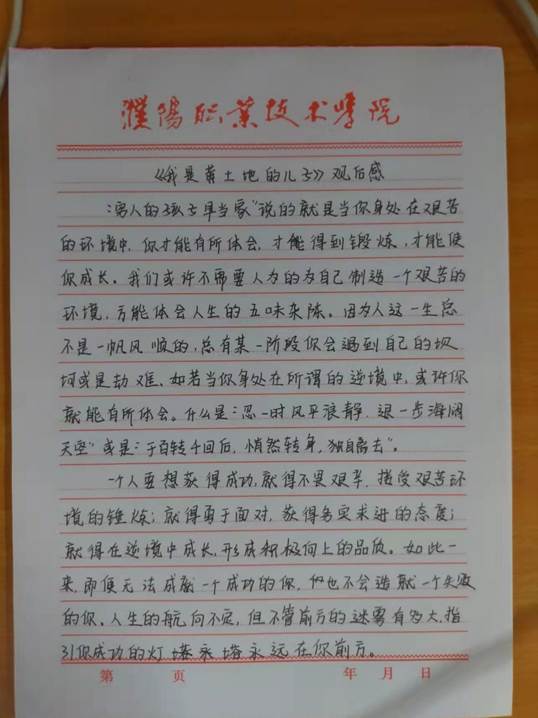 濮阳职业技术学院
《我是黄土地的儿子》观后感
"穷人的孩子早当家"说的就是当你身处在艰苦
的环境中，你才能有所体会，才能得到锻炼，才能使
你成长。我们或许不需要人为的为自己制造一个艰苦的
环境，方能体会人生的五味杂陈。因为人这一生总
不是一帆风顺的，总有某一阶段你会遇到自己的坎
坷或是劫难。如若当你身处在所谓的逆境中，或许你
就能有所体会。什么是："忍一时风平浪静，退一步海阔
天空"或是："于百转千回后，悄然转身，独自离去"。
一个人要想获得成功，就得不畏艰辛，接受艰苦环
境的锤炼；就得勇于面对，获得务实求进的态度；
就得在逆境中成长，形成积极向上的品质。如此一
来，即便无法成就一个成功的你，但也不会造就一个失败
的你。人生的航向不定，但不管前方的迷雾有多大，指
引你成功的灯塔永塔永远在你前方。
第 页 年 月 日